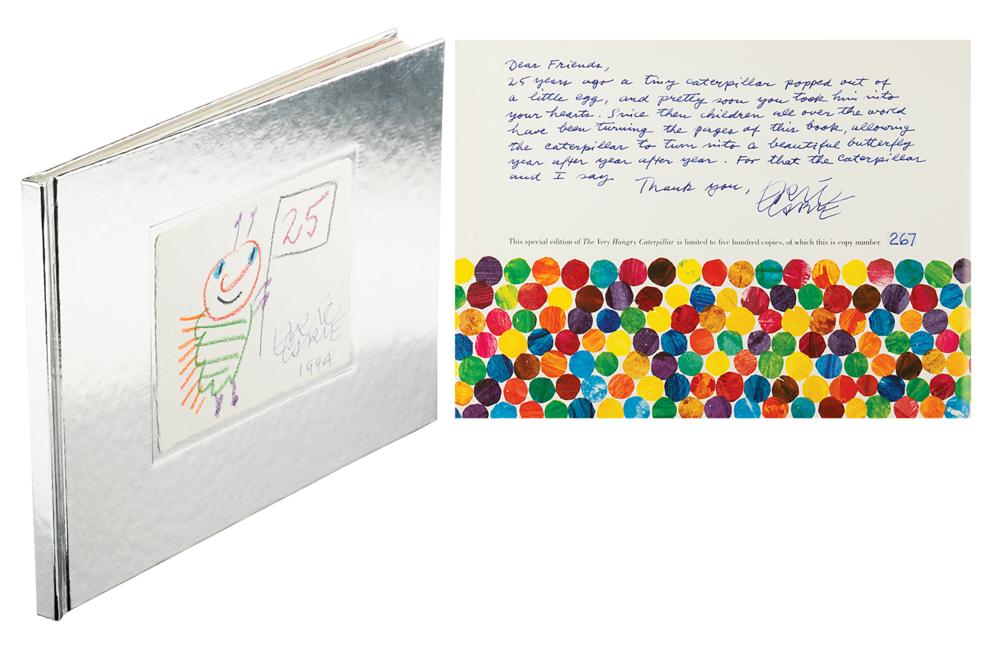 25
ERIC
CARLE
1994
Dear Friends,
25 years ago a tiny caterpillar popped out of
a little egg, and pretty soon you took him into
your hearts. Since then children all over the world
have been turning the pages of this book, allowing
the caterpillar to turn into a beautiful butterfly
year after year after year. For that the caterpillar
and I say Thank you, ERIC
CARLE
This special edition of The Very Hungry Caterpillar is limited to five hundred copies, of which this is copy number 267